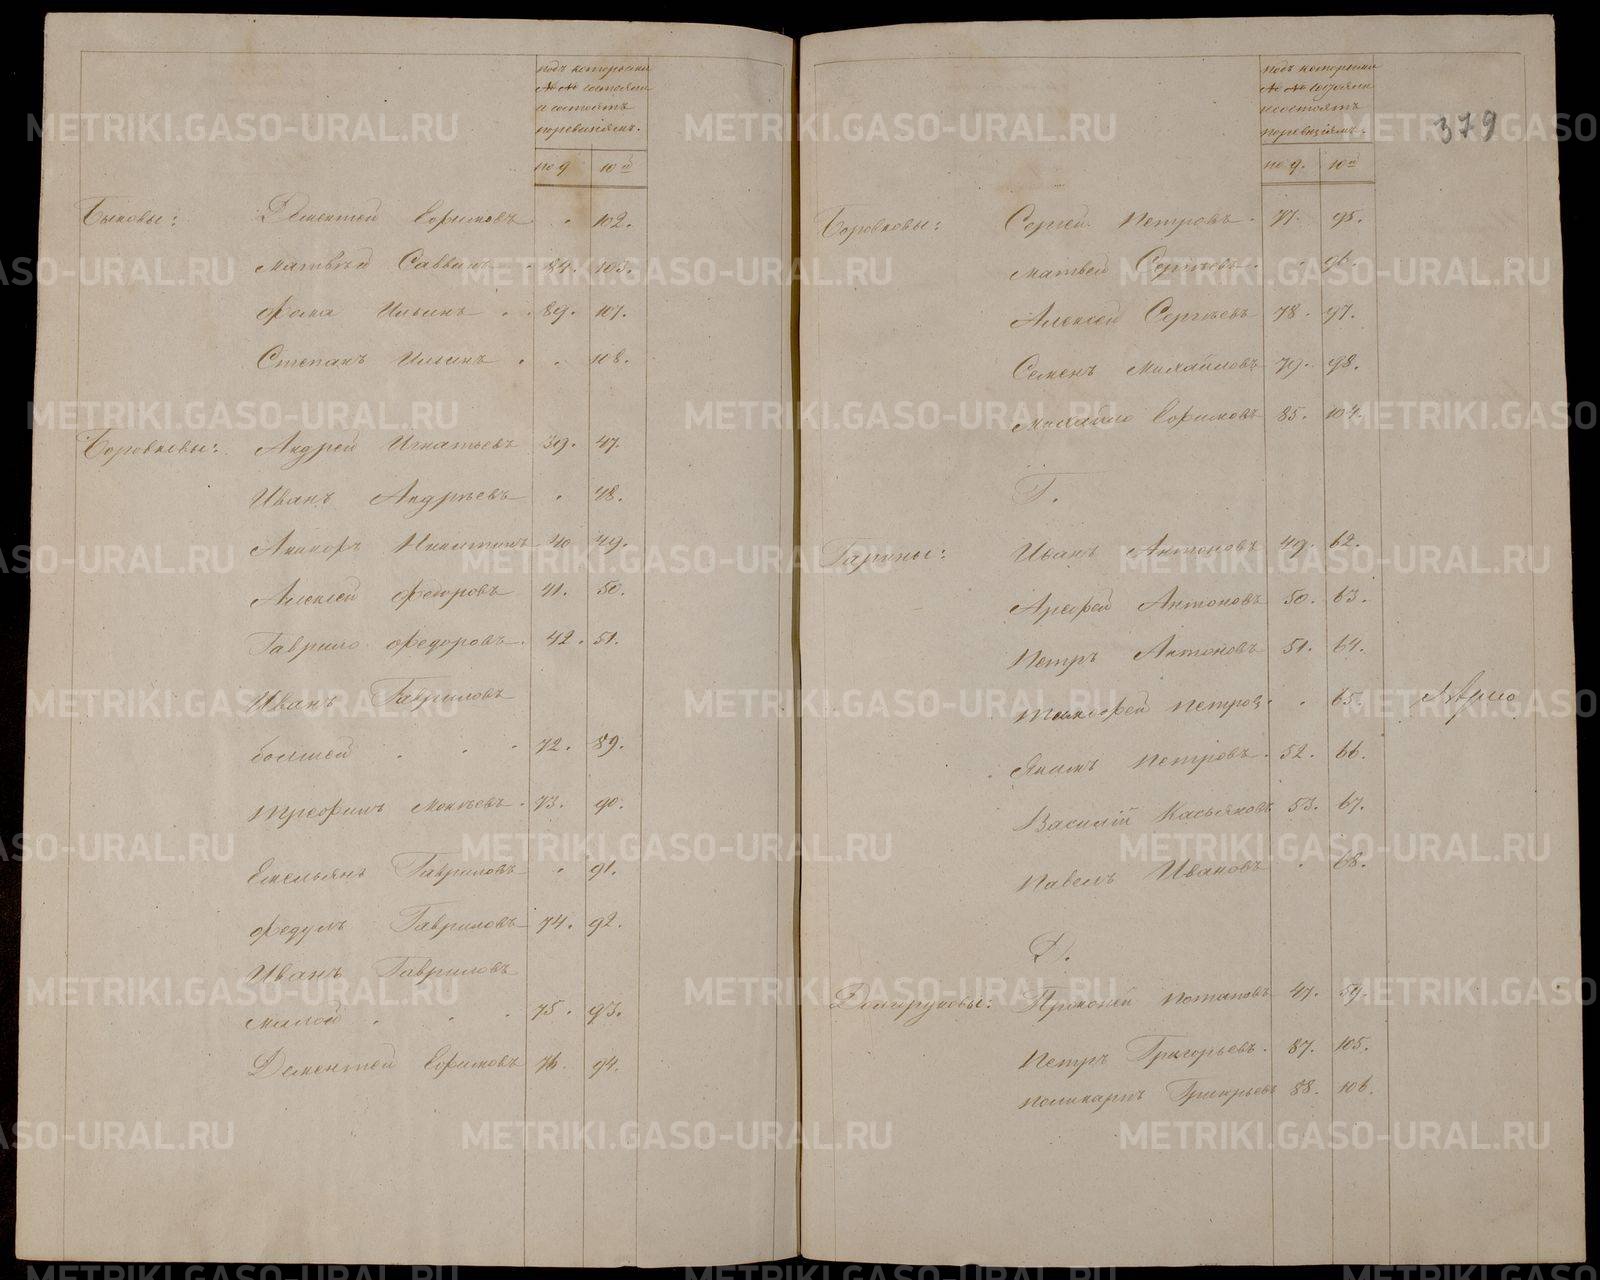 подъ которыми
№ № состояли
и состоятъ
поревизіямъ.
по 9 10й
Быковы: Дементей Ефимовъ 102.
Матвѣй Саввинъ 84. 103.
Фома Ильинъ 89. 107.
Степанъ Ильинъ 108.
Боровковы: Андрей Игнатьевъ 39. 47.
Иванъ Андрѣевъ 48.
Никифоръ Никитинъ 40 49.
Алексей Федоровъ 41. 50.
Гаврило Федоровъ 42. 51.
Иванъ Гавриловъ
большей 72. 89.
Трофимъ Мокѣевъ 73. 90.
Емельянъ Гавриловъ 91.
Федулъ Гавриловъ 74. 92.
Иванъ Гавриловъ
малой 75. 93.
Дементей Ефимовъ 76. 94.
379
подъ которыми
№ № состояли
и состоятъ
поревизіямъ.
по 9. 10й
Боровковы: Сергей Петровъ 77. 95.
Матвей Сергѣевъ 96.
Алексей Сергѣевъ 78. 97.
Семенъ Михайловъ 79. 98.
Михайло Ефимовъ 85. 104.
Г.
Гарины: Иванъ Антоновъ 49. 62.
Арефей Антоновъ 50. 63.
Петръ Антоновъ 51. 64.
Тимофей Петровъ 65.
Якимъ Петровъ 52. 66.
Василій Касьяновъ 53. 67.
Павелъ Ивановъ 68.
Д.
Долгоруковы: Прокопей Потаповъ 47. 59.
Петръ Григорьевъ 87. 105.
Поликарпъ Григорьевъ 88. 106.
METRIKI.GASO-URAL.RU